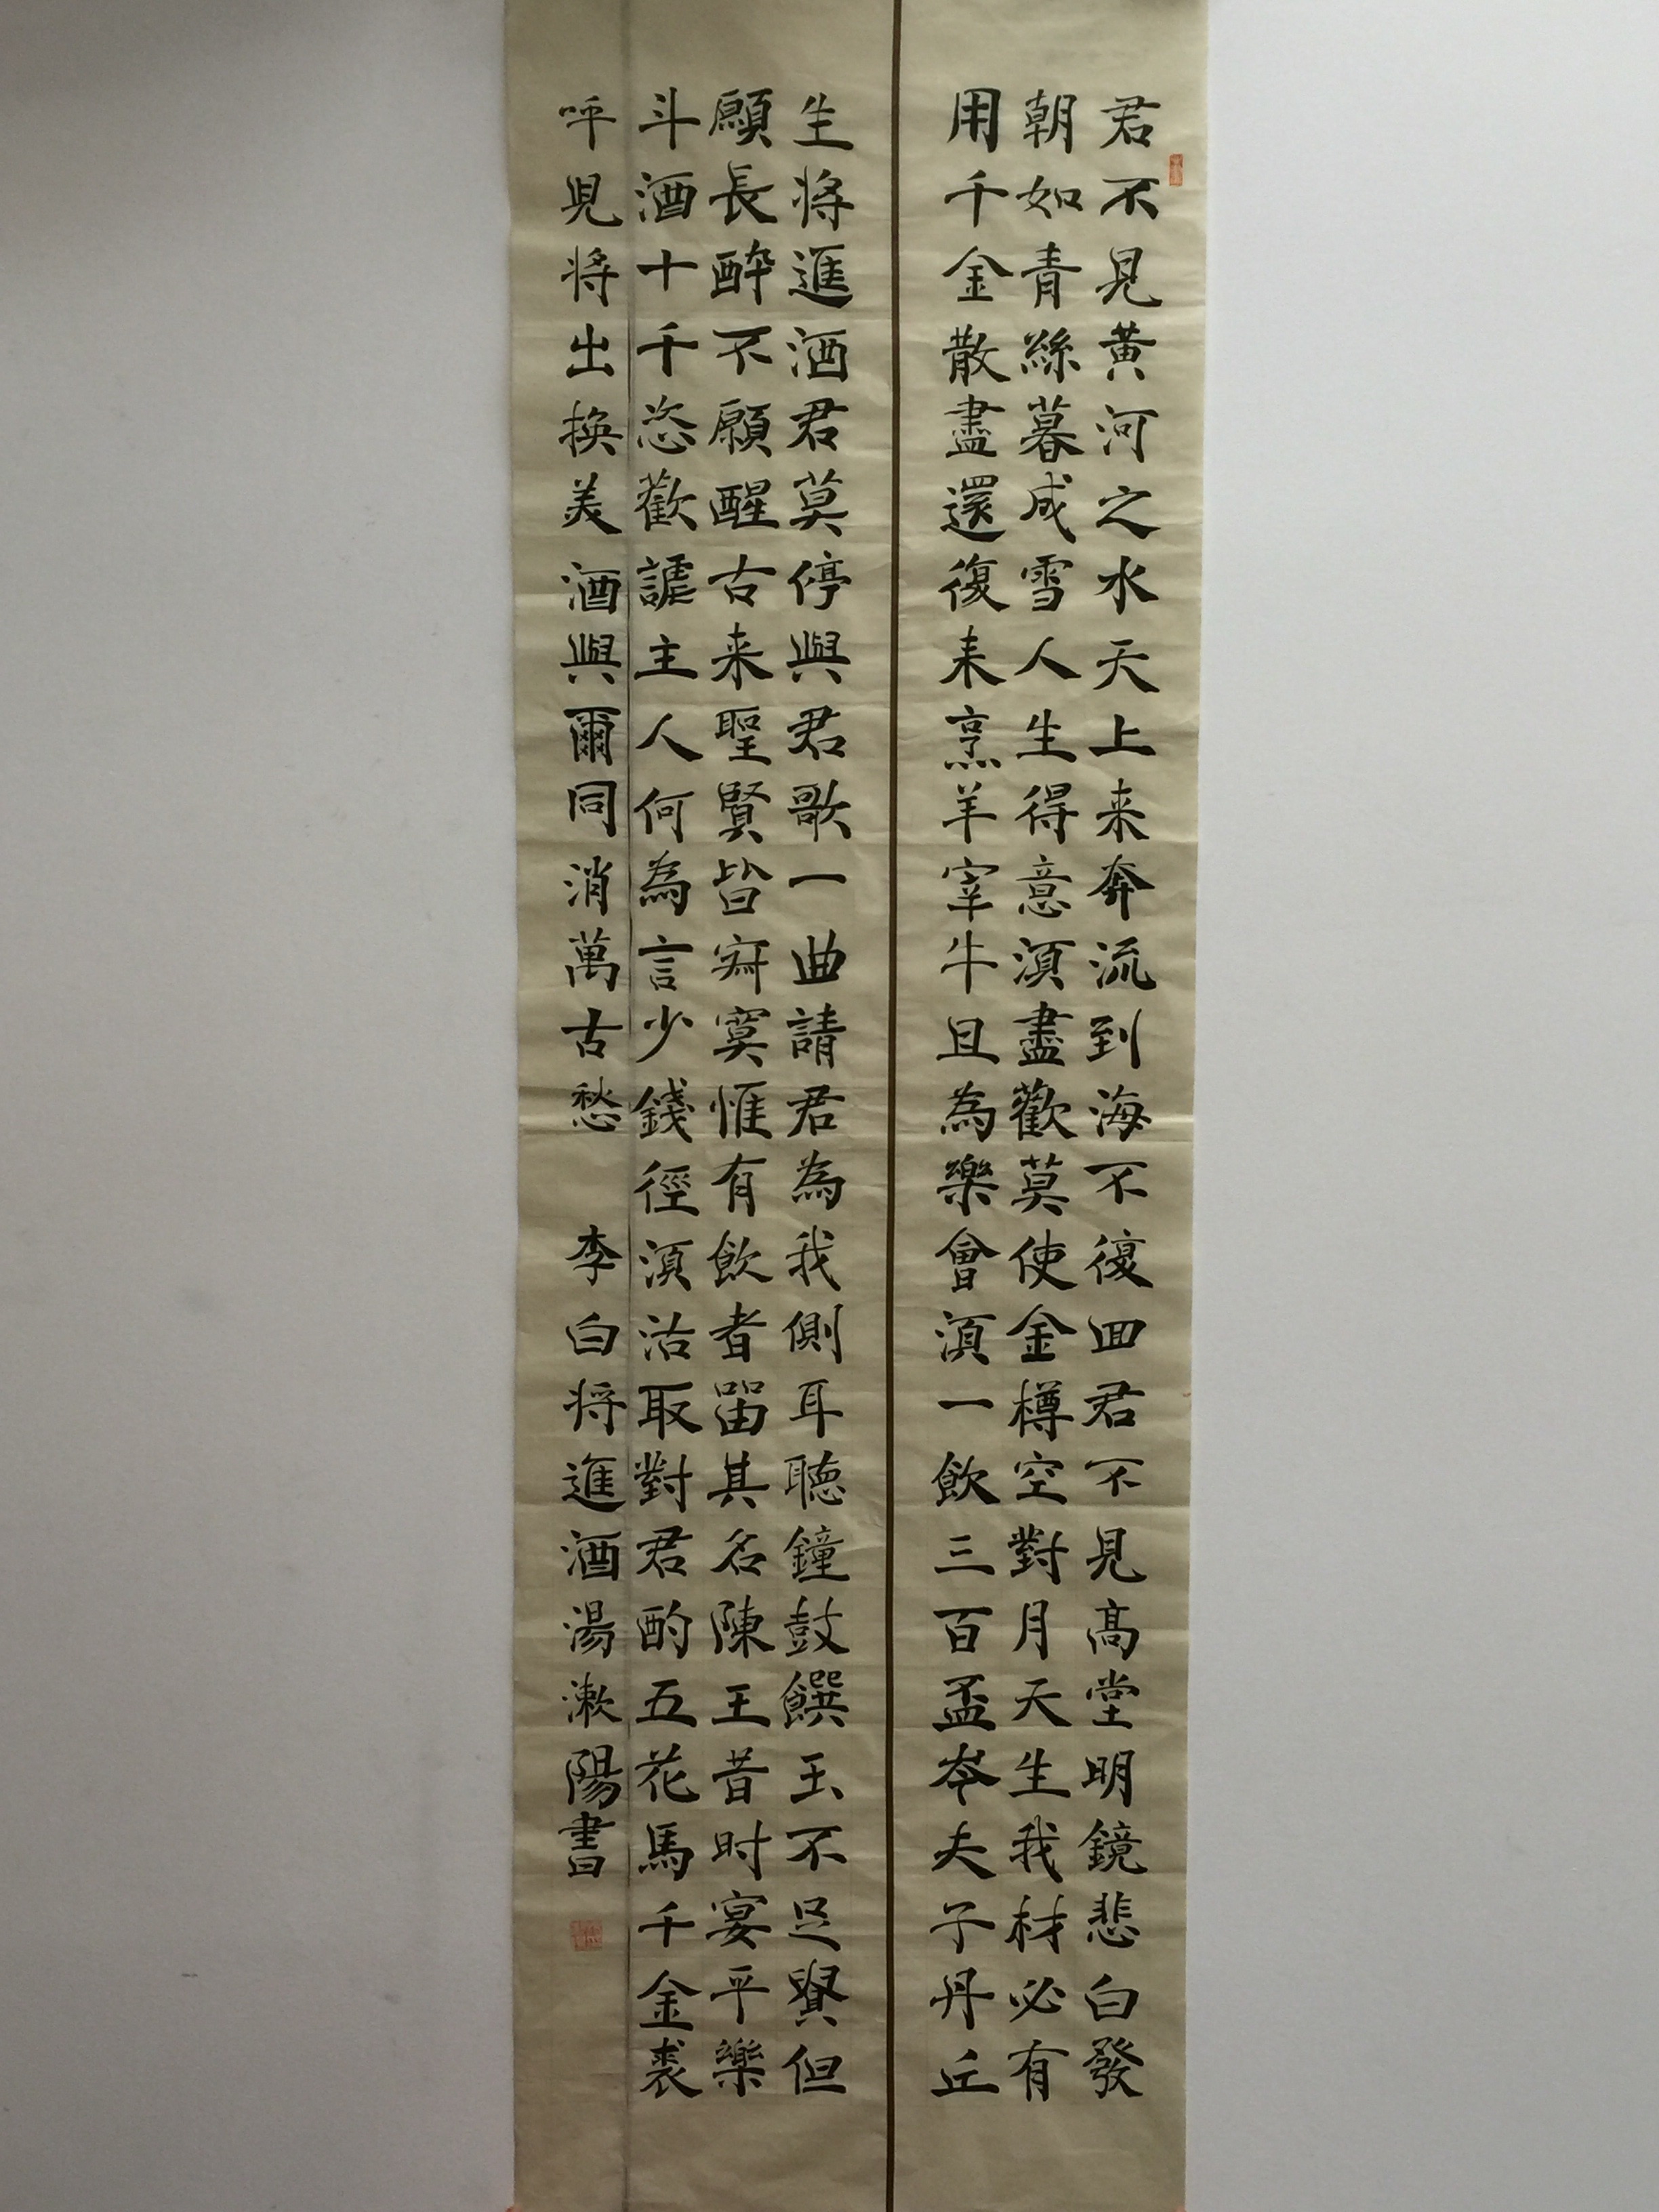 君不見黃河之水天上来奔流到海不復回君不見高堂明鏡悲白發
朝如青絲暮成雪人生得意須盡歡莫使金樽空對月天生我材必有
用千金散盡還復来烹羊宰牛且為樂會須一飲三百盃岑夫子丹丘
生將進酒君莫停與君歌一曲請君為我側耳聽鐘鼓饌玉不足貴但
願長醉不願醒古来聖賢皆寂寞惟有飲者留其名陳王昔时宴平樂
斗酒十千恣歡謔主人何為言少錢徑須沽取對君酌五花馬千金裘
呼兒將出換美酒與爾同消萬古愁 李白將進酒湯漱陽書